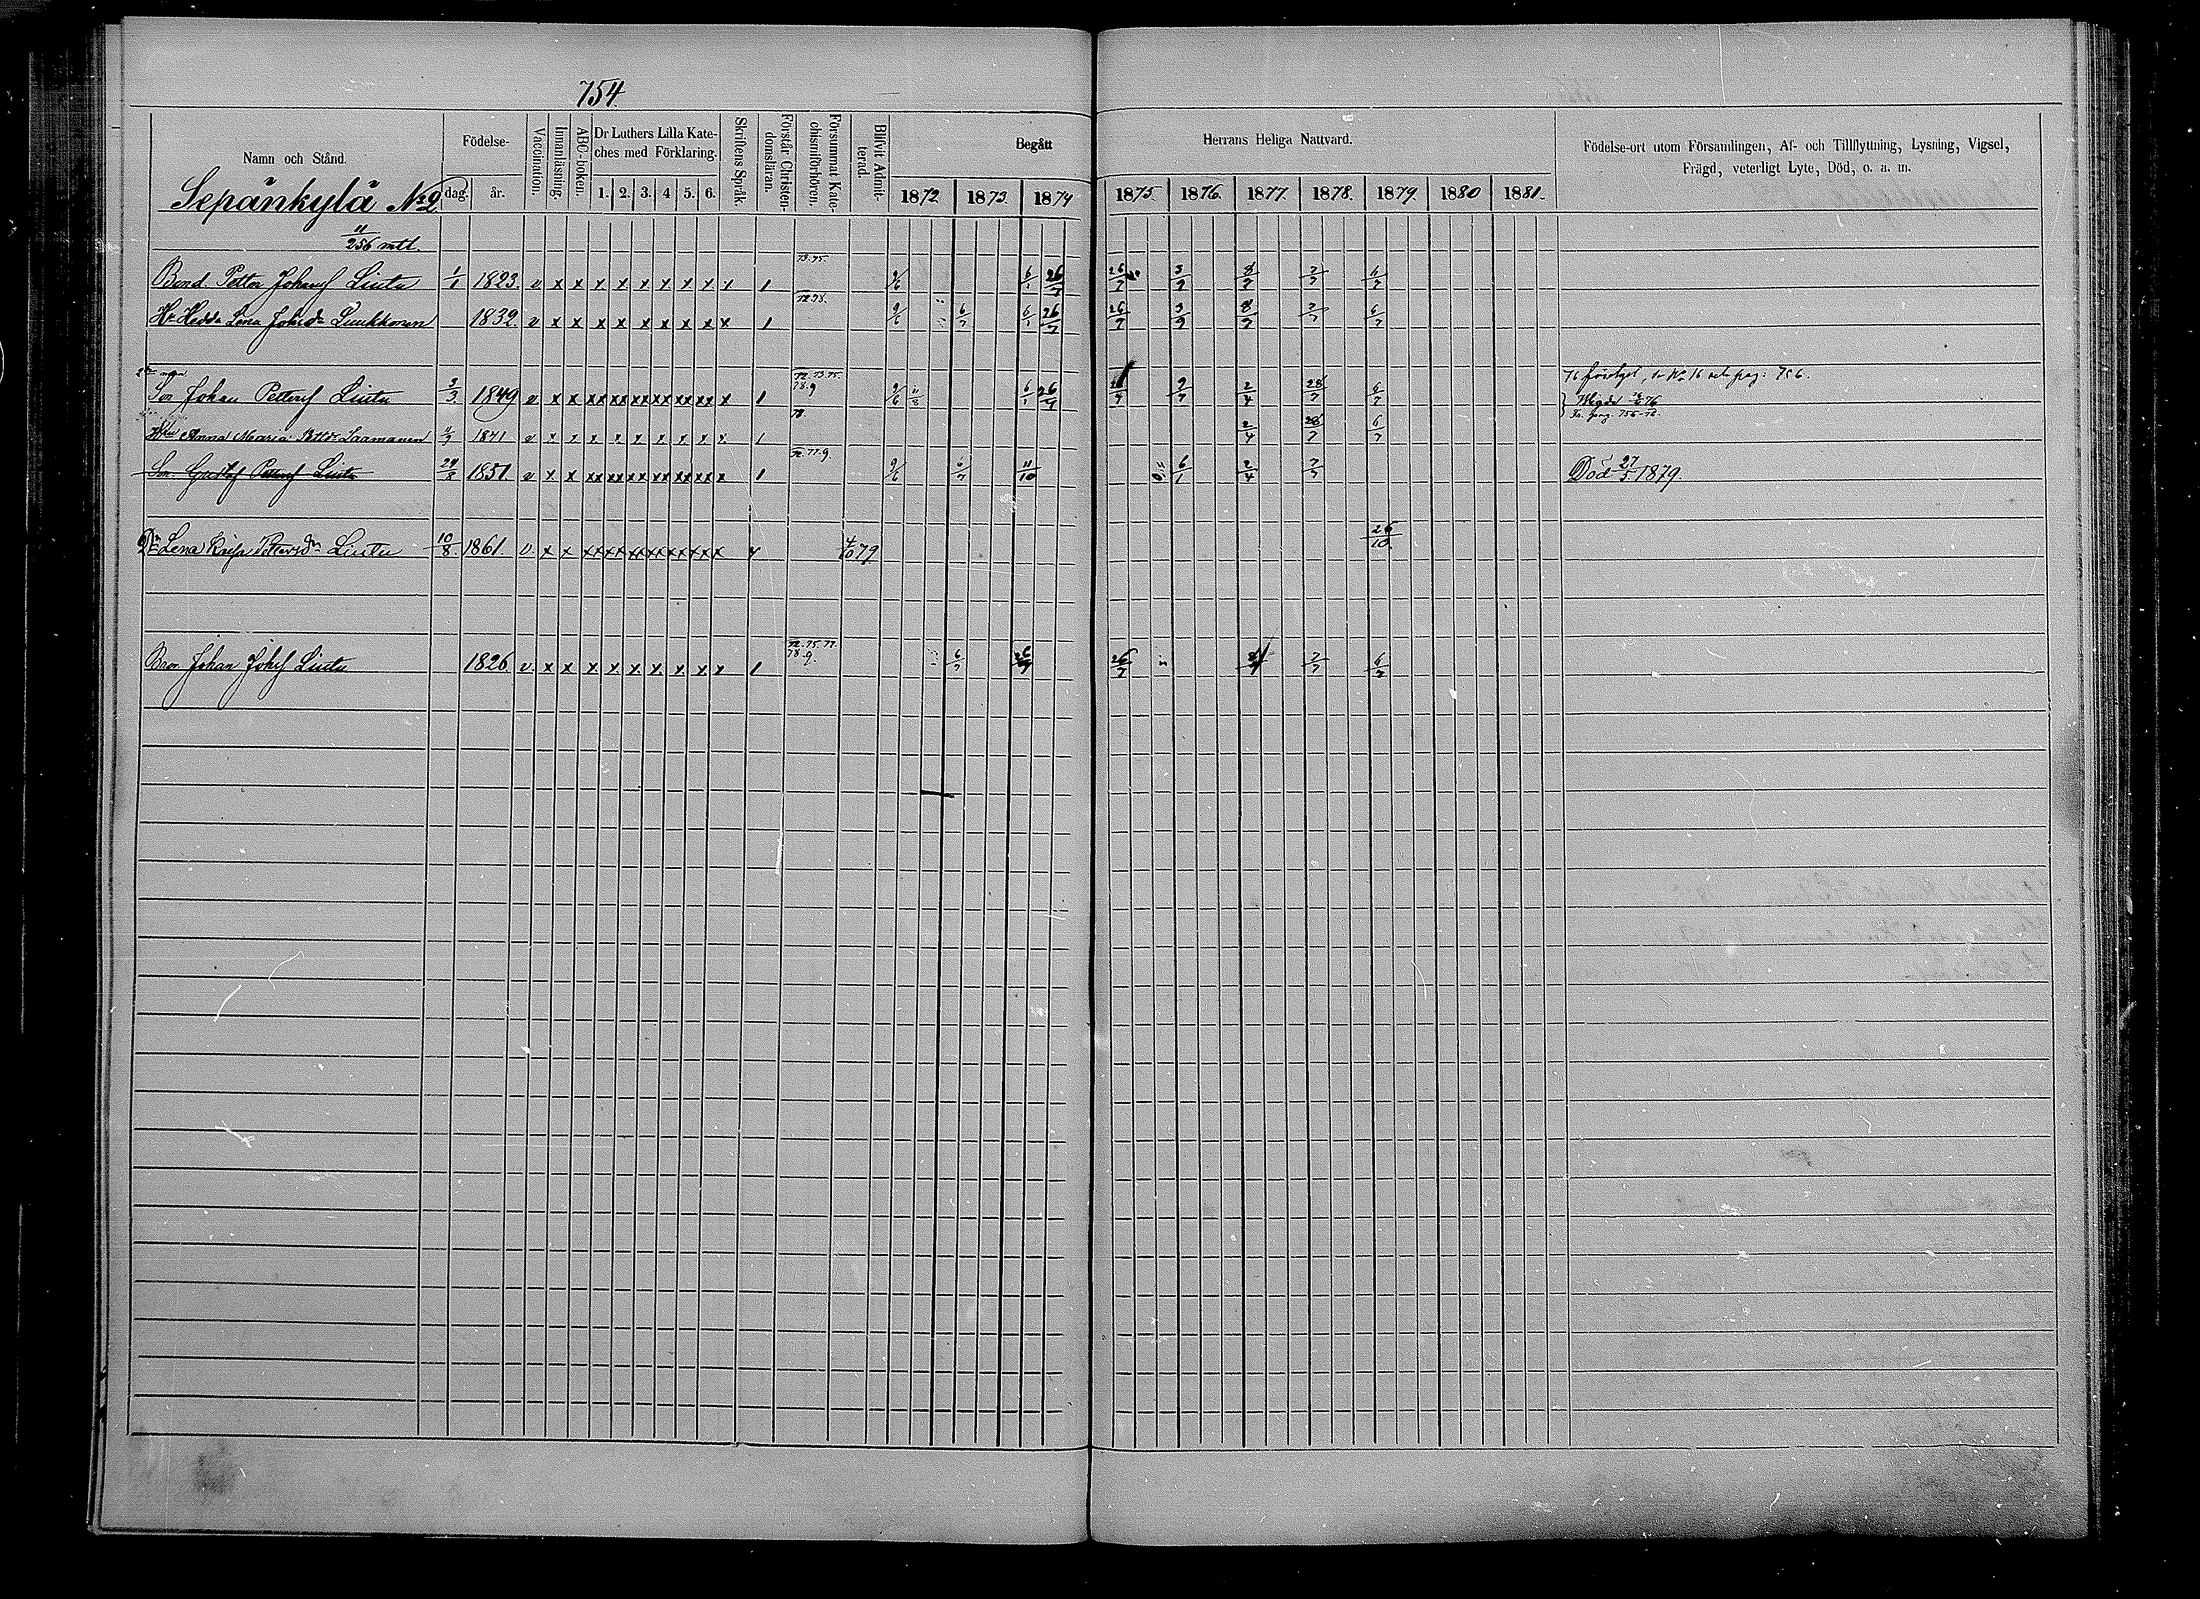 754.
Namn och Stånd.
Födelse-
dag.
år.
Vaccination.
Innanläsning
ABC-boken.
Dr Luthers Lilla Kate-
ches med Förklaring.
1. 2. 3. 4 5. 6.
Skriftens Språk.
Förstår Christen-
domsläran.
Försummat Kate-
chismiförhören.
Blifvit Admit-
terad.
Begått
Herrans Heliga Nattvard.
1872 1873. 1874 1875. 1876. 1877. 1878. 1879. 1880 1881.
Födelse-ort utom Församlingen, Af- och Tillflyttning, Lysning, Vigsel,
Frägd, veterligt Lyte, Död, o. a. m.
Sepänkylä No 2
11/256 mtl.
Bond. Petter Johans Lintu 1/1 1823. v x x x x x x x x 1 73.75. 9/6 6/1 26/7 26/7 3/9 8/7 7/7 6/7
Hu Hedda Lena Johsdr Luukkonen 1832. v x x x x x x x x x 1 9/6 6/7 6/1 26/7 26/7 3/9 8/7 7/7 6/7
Son Johan Petters Lintu 3/3 1849 v x x xx xx xx xx xx xx x 1 72.73.75. 78.9 9/6 6/1 26/7 7/7 2/4 28/7 6/7 76 pag: 756.
Anna Maria Laamanen 1841 v x x x x x x x x x 1 78 2/4 28/7 6/7
Son. Gustaf Petters Lintu 1851. v x x xx xx xx xx xx xx x 1 72.77.9. 9/6 6/7 11/10 6/1 2/4 7/7 Död 27/5 1879.
Dr Lena Petersdr Lintu 10/8. 1861. v. x x xx xx xx xx xx xx 4/10 79. 26/10.
Bror Johan Johs Lintu 1826 v. x x x. x. x. x. x. x. x 1 72.75.77. 78.9. 6/7 26/7 26/7 7/7 6/7